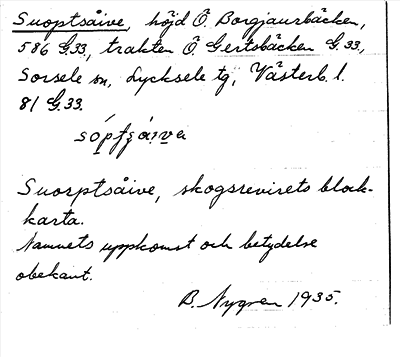 Suoptsåive, höjd Ö. Borgjaurbäcken,
586 G.33, trakten Ö Gertsbäcken G.33,
Sorsele sn, Lycksele tg, Västerb. l.
81 G.33.
sópfsáiva
Suorptsåive, skogsrevirets block-
karta.
Namnets uppkomst och betydelse
obekant.
B. Nygren 1935.